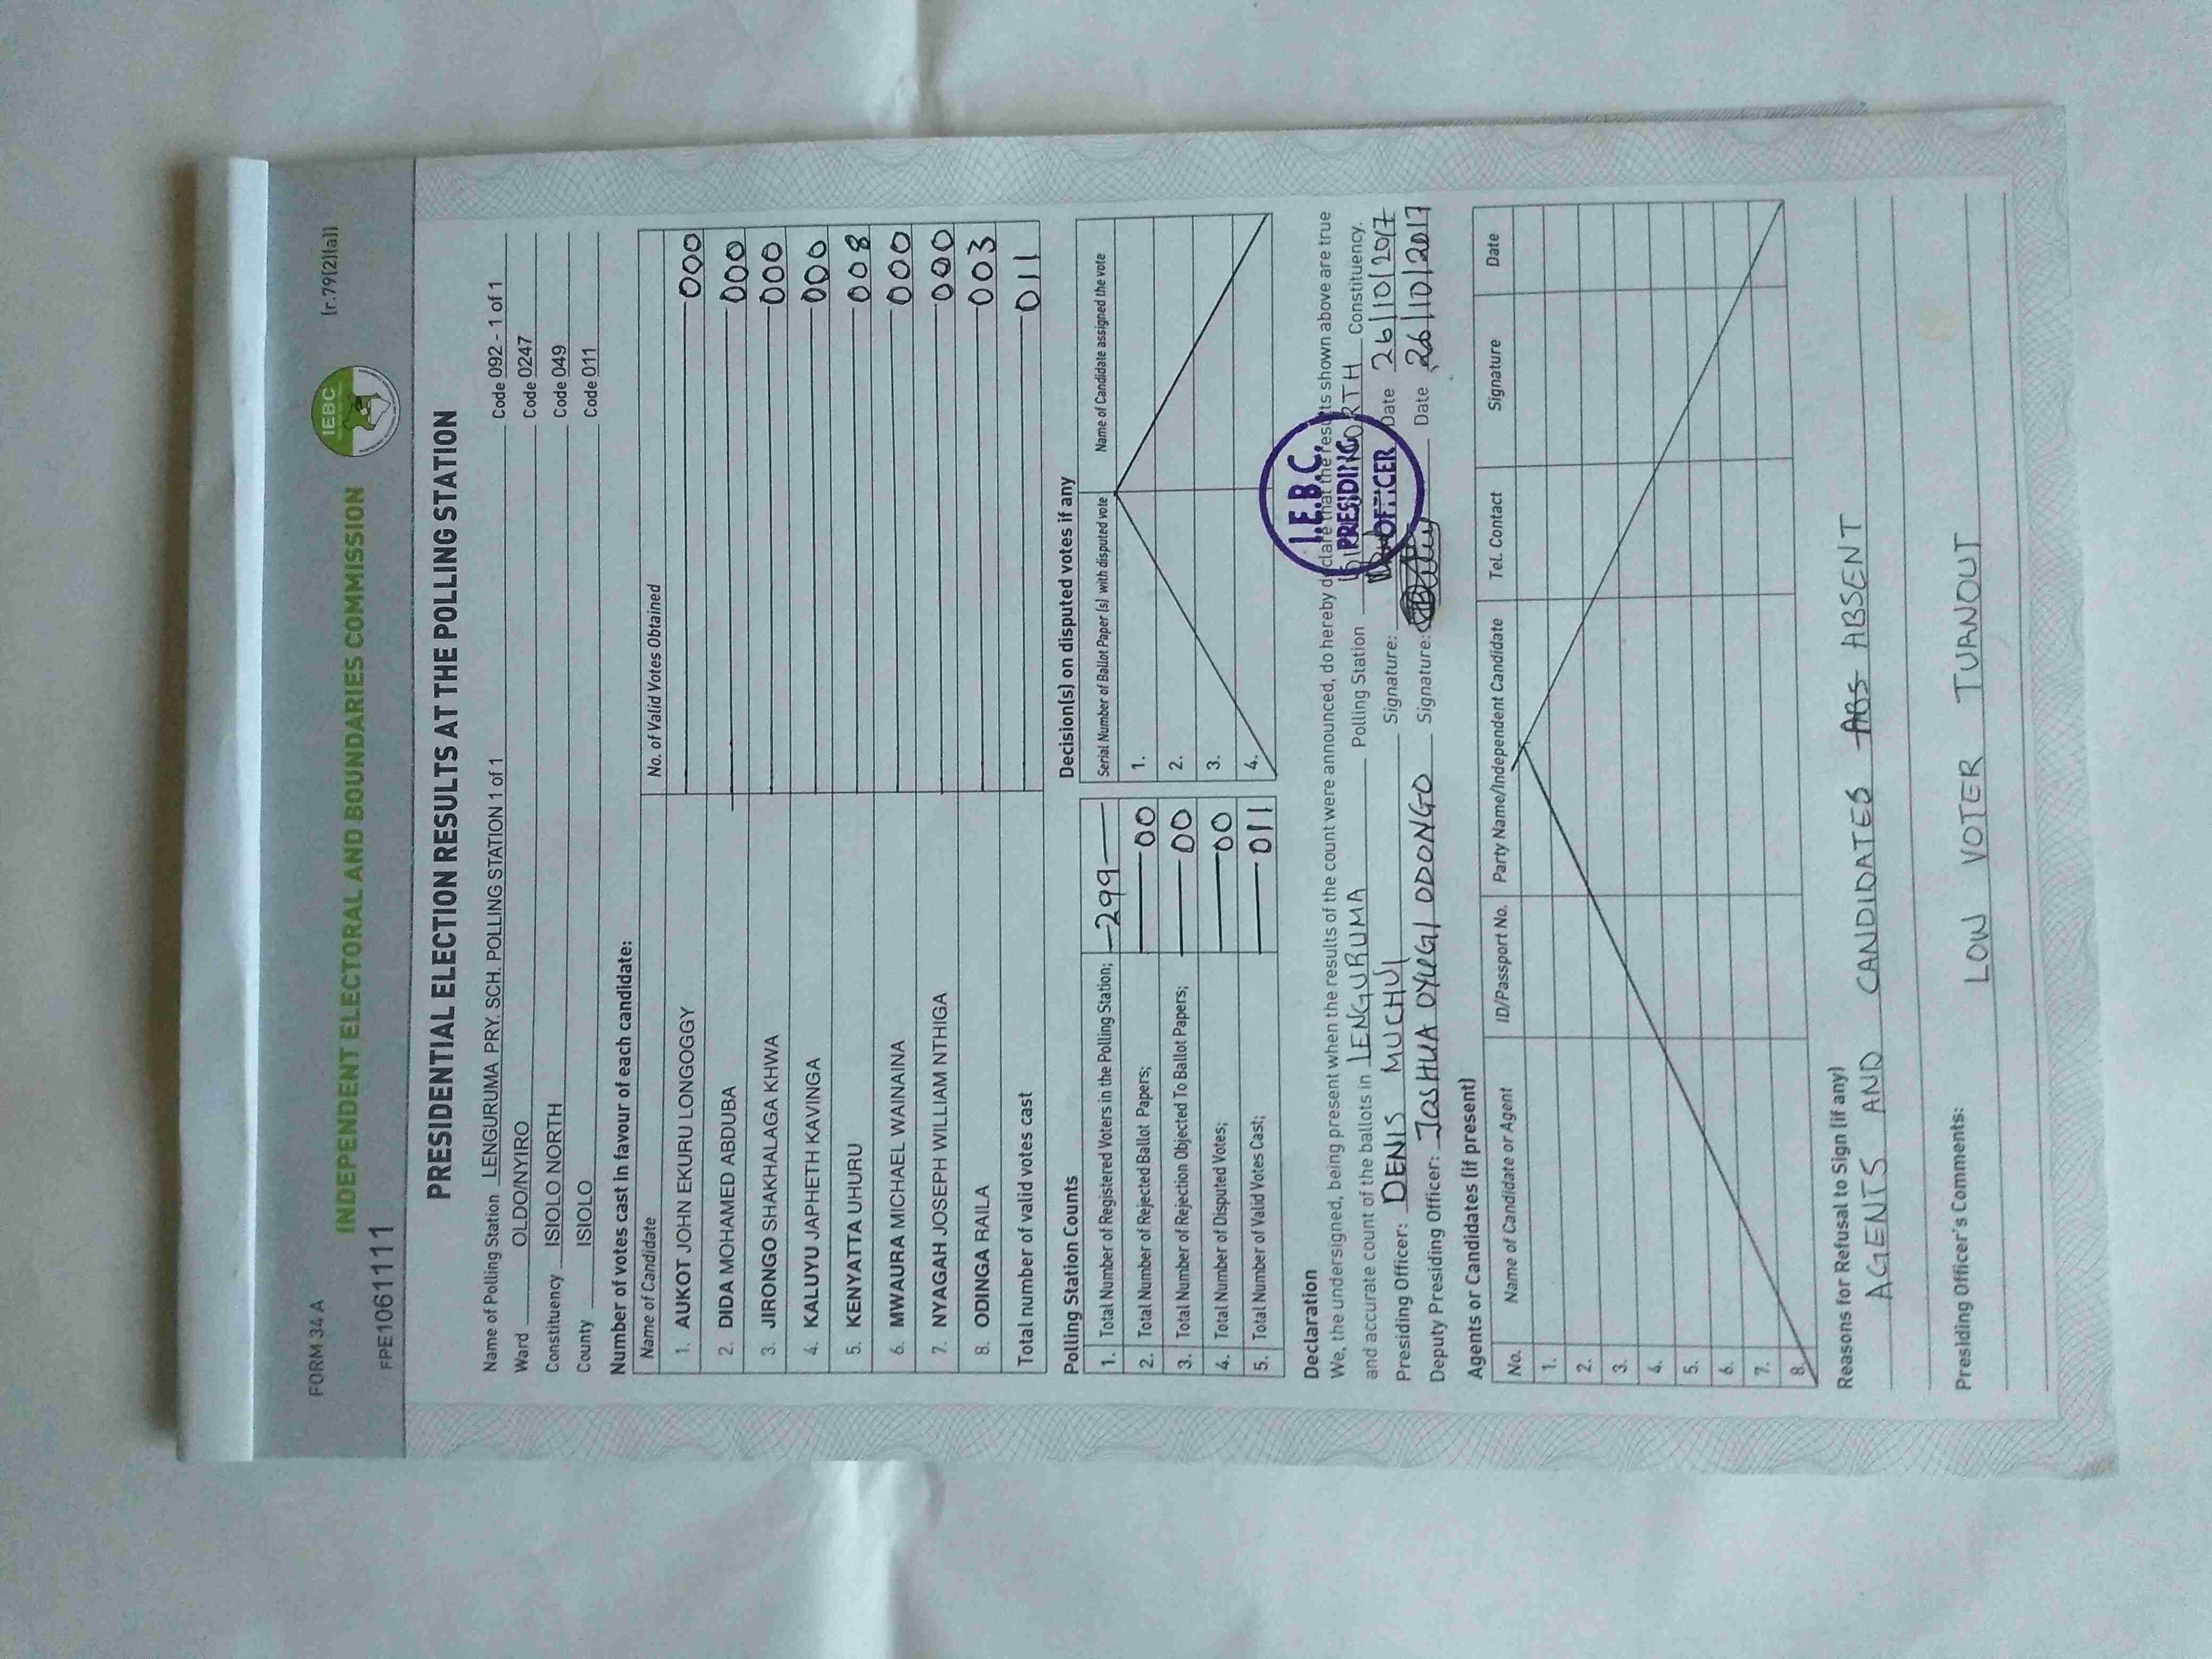 FORM 34 A
[r.79(2)(a)]
INDEPENDENT ELECTORAL AND BOUNDARIES COMMISSION
IEBC
FPE1061111
PRESIDENTIAL ELECTION RESULTS AT THE POLLING STATION
Name of Polling Station LENGURUMA PRY. SCH. POLLING STATION 1 of 1 Code 092 - 1 of 1
Ward OLDO/NYIRO Code 0247
Constituency ISIOLO NORTH Code 049
County ISIOLO Code 011
Number of votes cast in favour of each candidate:
Name of Candidate No. of Valid Votes Obtained
1. AUKOT JOHN EKURU LONGOGGY 000
2. DIDA MOHAMED ABDUBA 000
3. JIRONGO SHAKHALAGA KHWA 000
4. KALUYU JAPHETH KAVINGA 000
5. KENYATTA UHURU 008
6. MWAURA MICHAEL WAINAINA 000
7. NYAGAH JOSEPH WILLIAM NTHIGA 000
8. ODINGA RAILA 003
Total number of valid votes cast 011
Polling Station Counts
1. Total Number of Registered Voters in the Polling Station; 299
2. Total Number of Rejected Ballot Papers; 00
3. Total Number of Rejection Objected To Ballot Papers; 00
4. Total Number of Disputed Votes; 00
5. Total Number of Valid Votes Cast; 011
Decision(s) on disputed votes if any
Serial Number of Ballot Paper (s) with disputed vote Name of Candidate assigned the vote
1.
2.
3.
4.
Declaration
We, the undersigned, being present when the results of the count were announced, do hereby declare that the results shown above are true
and accurate count of the ballots in LENGURUMA Polling Station ISIOLO NORTH Constituency.
Presiding Officer: DENIS MUCHUI Signature: Date 26/10/2017
Deputy Presiding Officer: JOSHUA OYUGI ODONGO Signature: Date 26/10/2017
I.E.B.C.
PRESIDING
OFFICER
Agents or Candidates (if present)
No. Name of Candidate or Agent ID/Passport No. Party Name/Independent Candidate Tel. Contact Signature Date
1.
2.
3.
4.
5.
6.
7.
8.
Reasons for Refusal to Sign (if any)
AGENTS AND CANDIDATES ABS ABSENT
Presiding Officer's Comments:
LOW VOTER TURNOUT